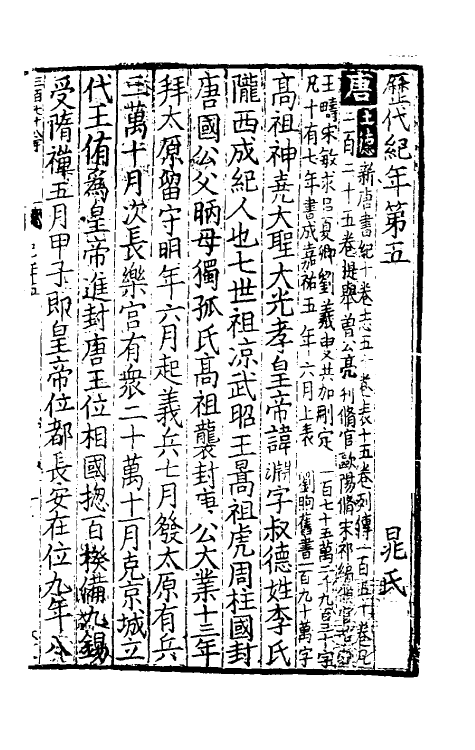 歷代紀年第五
晁氏
唐
土德
新唐書紀十卷志五十卷表十五卷列傳一百五十卷凡
二百二十五卷提舉曾公亮刊脩官歐陽脩宋祁編脩官范鎮
王疇宋敏求呂夏卿劉羲叟共加刪定一百七十五萬二千九百三十字
凡十有七年書成嘉祐五年六月上表劉昫舊書一百九十萬字
高祖神堯大聖大光孝皇帝諱淵字叔德姓李氏
隴西成紀人也七世祖涼武昭王暠祖虎周柱國封
唐國公父昞母獨孤氏高祖襲封唐公大業十三年
拜太原留守明年六月起義兵七月發太原有兵
三萬十月次長樂宮有衆二十萬十月克京城立
代王侑爲皇帝進封唐王位相國揔百揆備九錫
受隋禪五月甲子即皇帝位都長安在位九年